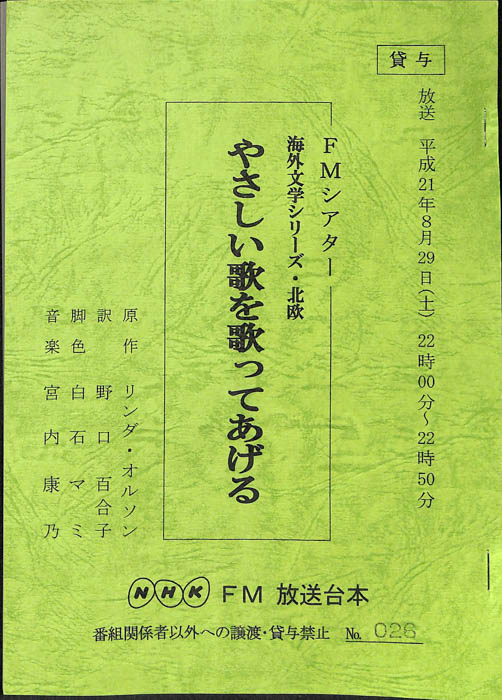 貸与
放送 平成21年8月29日(土) 22時00分～22時50分
FMシアター
海外文学シリーズ・北欧
やさしい歌を歌ってあげる
原作 リンダ・オルソン
訳 野口 百合子
脚色 白石 マミ
音楽 宮内 康乃
NHK FM 放送台本
番組関係者以外への譲渡・貸与禁止 No. 026